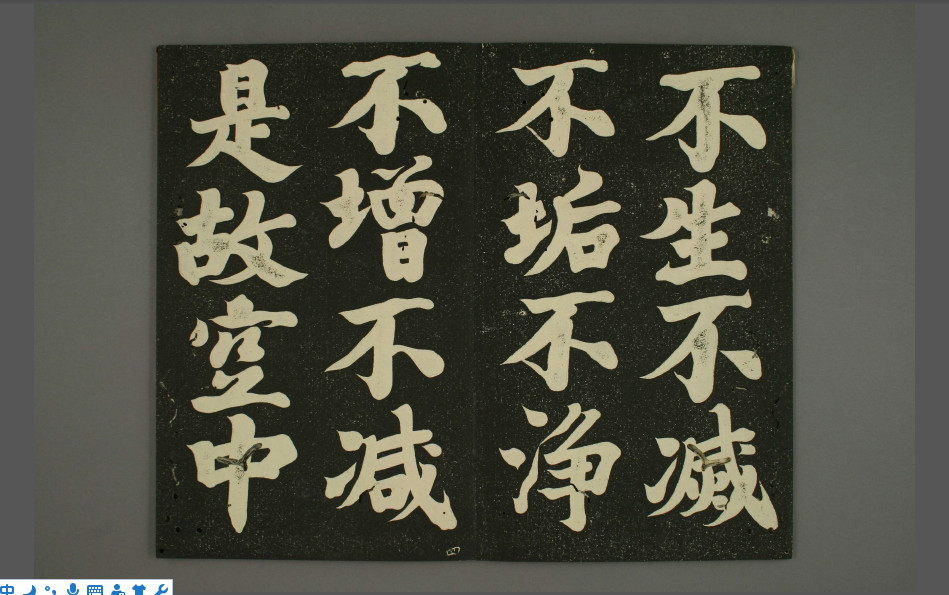 不生不滅
不垢不净
不增不减
是故空中
中